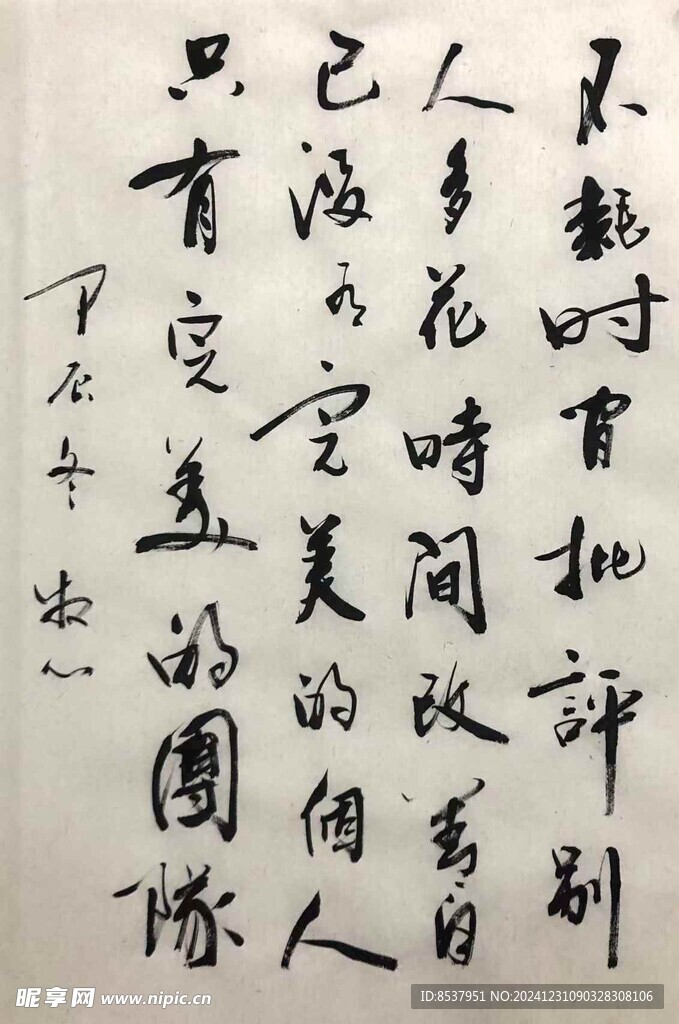 不耗时间批評别
人多花時間改善自
己没有完美的個人
只有完美的團隊
甲辰冬
昵享网 www.nipic.cn
ID:8537951 NO:20241231090328308106